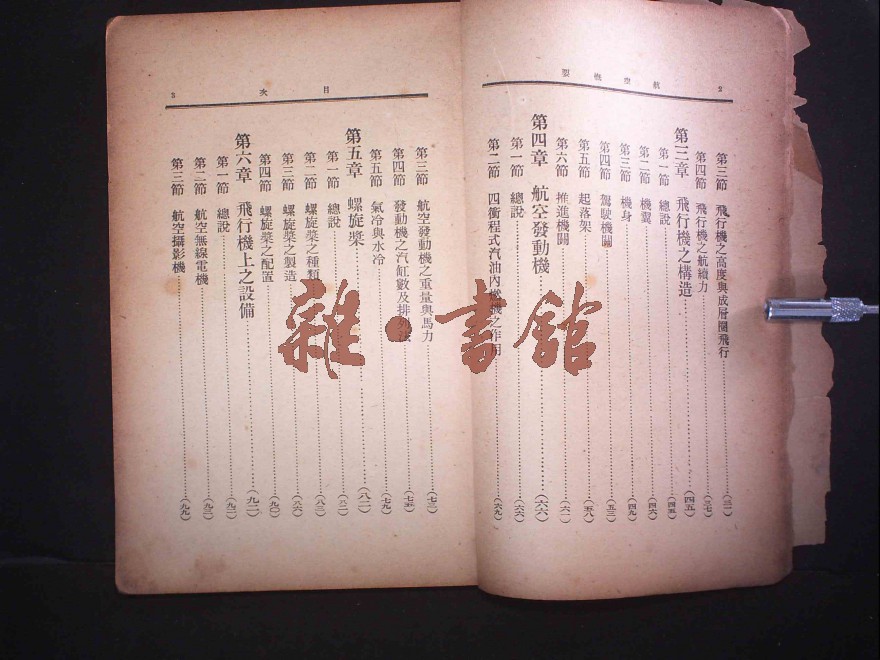 航空概要
第三節 飛行機之高度與成層圈飛行 (三一)
第四節 飛行機之航續力 (三七)
第三章 飛行機之構造 (四五)
第一節 總說 (四五)
第二節 機翼 (四六)
第三節 機身 (四九)
第四節 駕駛機關 (五三)
第五節 起落架 (五八)
第六節 推進機關 (六一)
第四章 航空發動機 (六六)
第一節 總說 (六六)
第二節 四衝程式汽油內燃機之作用 (六九)
目次
第三節 航空發動機之重量與馬力 (七三)
第四節 發動機之汽缸數及排列法 (七五)
第五節 氣冷與水冷 (七九)
第五章 螺旋槳 (八二)
第一節 總說 (八二)
第二節 螺旋槳之種類 (八三)
第三節 螺旋槳之製造 (八六)
第四節 螺旋槳之配置 (九〇)
第六章 飛行機上之設備 (九二)
第一節 總說 (九二)
第二節 航空無線電機 (九三)
第三節 航空攝影機 (九九)
雜·書館